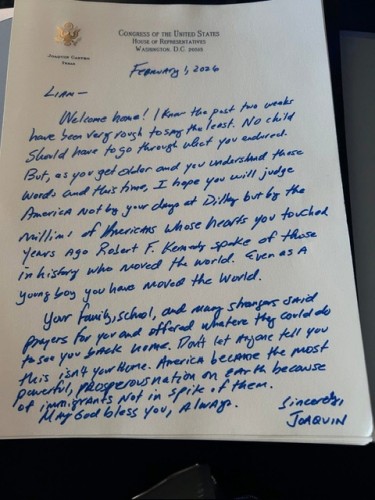 CONGRESS OF THE UNITED STATES
HOUSE OF REPRESENTATIVES
WASHINGTON, D.C. 20515
JOAQUIN CASTRO
TEXAS
FEBRUARY 1, 2026
LIAM-
Welcome home! I know the past two weeks
have been very rough to say the least. No child
should have to go through what you endured.
But, as you get older and you understand these
words and this time, I hope you will judge
America not by your days at Dilley but by the
millions of Americans whose hearts you touched
Years ago Robert F. Kennedy spoke of those
in history who moved the world. Even as a
young boy you have moved the world.
Your family, school, and many strangers said
prayers for you and offered whatever they could do
to see you back home. Don't let anyone tell you
this isn't your home. America became the most
powerful, prosperous nation on earth because
of immigrants not in spite of them.
May God bless you, Always.
Sincerely,
JOAQUIN